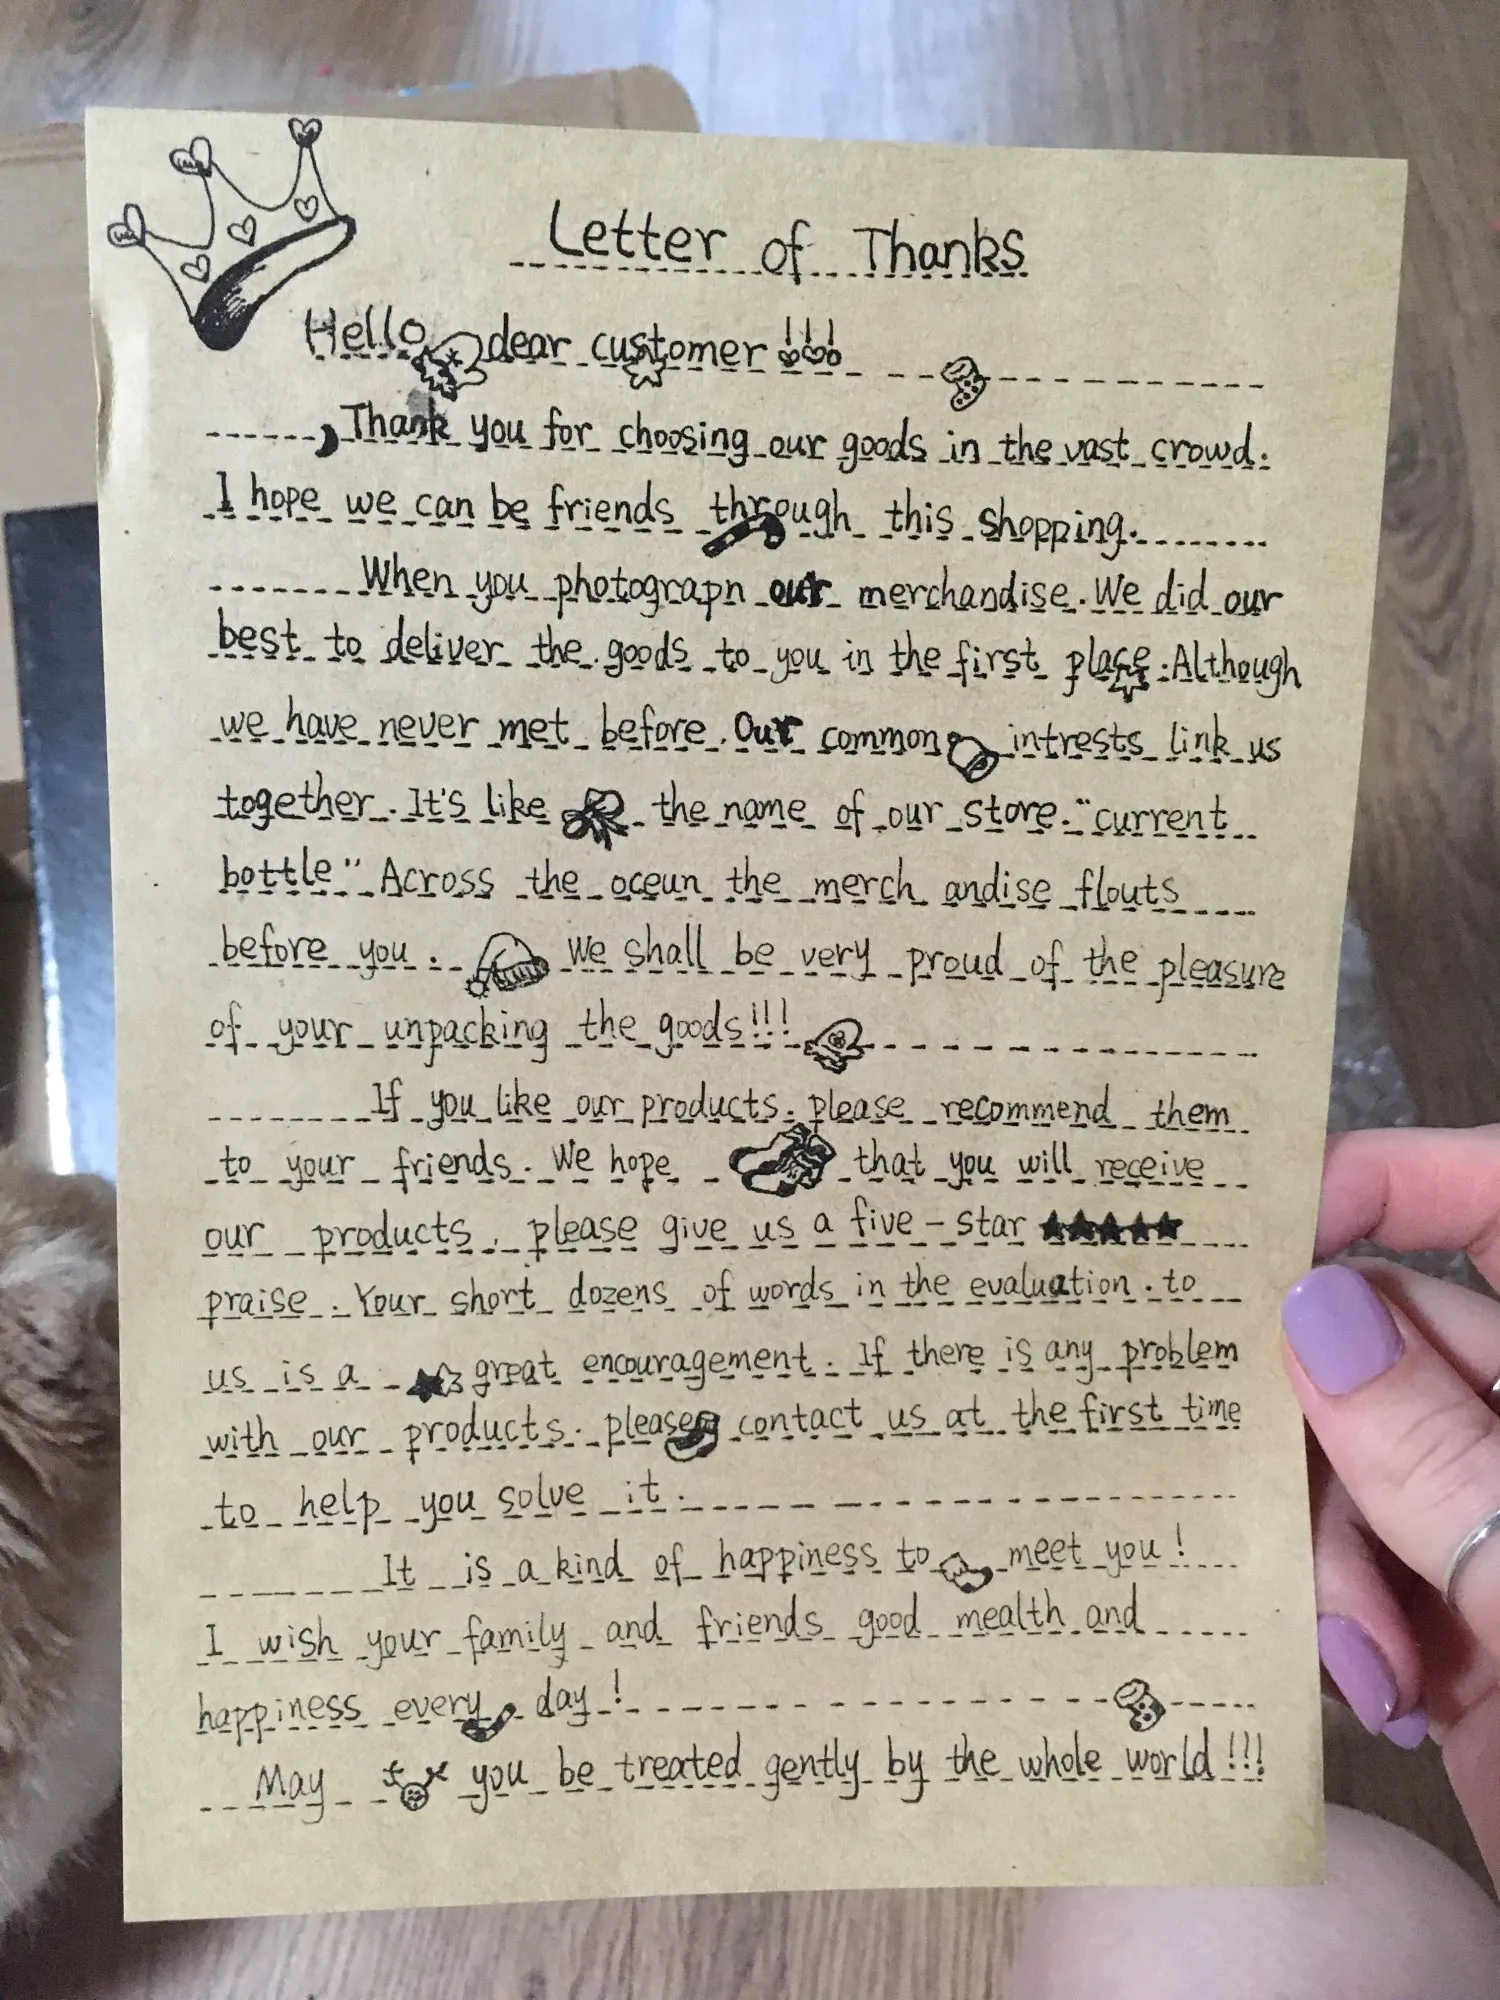 Letter of Thanks
Hello dear customer !!!
Thank you for choosing our goods in the vast crowd.
I hope we can be friends through this shopping.
When you photograpn our merchandise. We did our
best to deliver the goods to you in the first place. Although
we have never met before. Our common intrests link us
together. It's like the name of our store. "current
bottle" Across the oceun the merch andise flouts
before you. We shall be very proud of the pleasure
of your unpacking the goods!!!
If you like our products. please recommend them
to your friends. We hope that you will receive
our products. please give us a five-star ★★★★★
praise. Your short dozens of words in the evaluation. to
us is a great encouragement. If there is any problem
with our products. please contact us at the first time
to help you solve it.
It is a kind of happiness to meet you!
I wish your family and friends good mealth and
happiness every day!
May you be treated gently by the whole world!!!